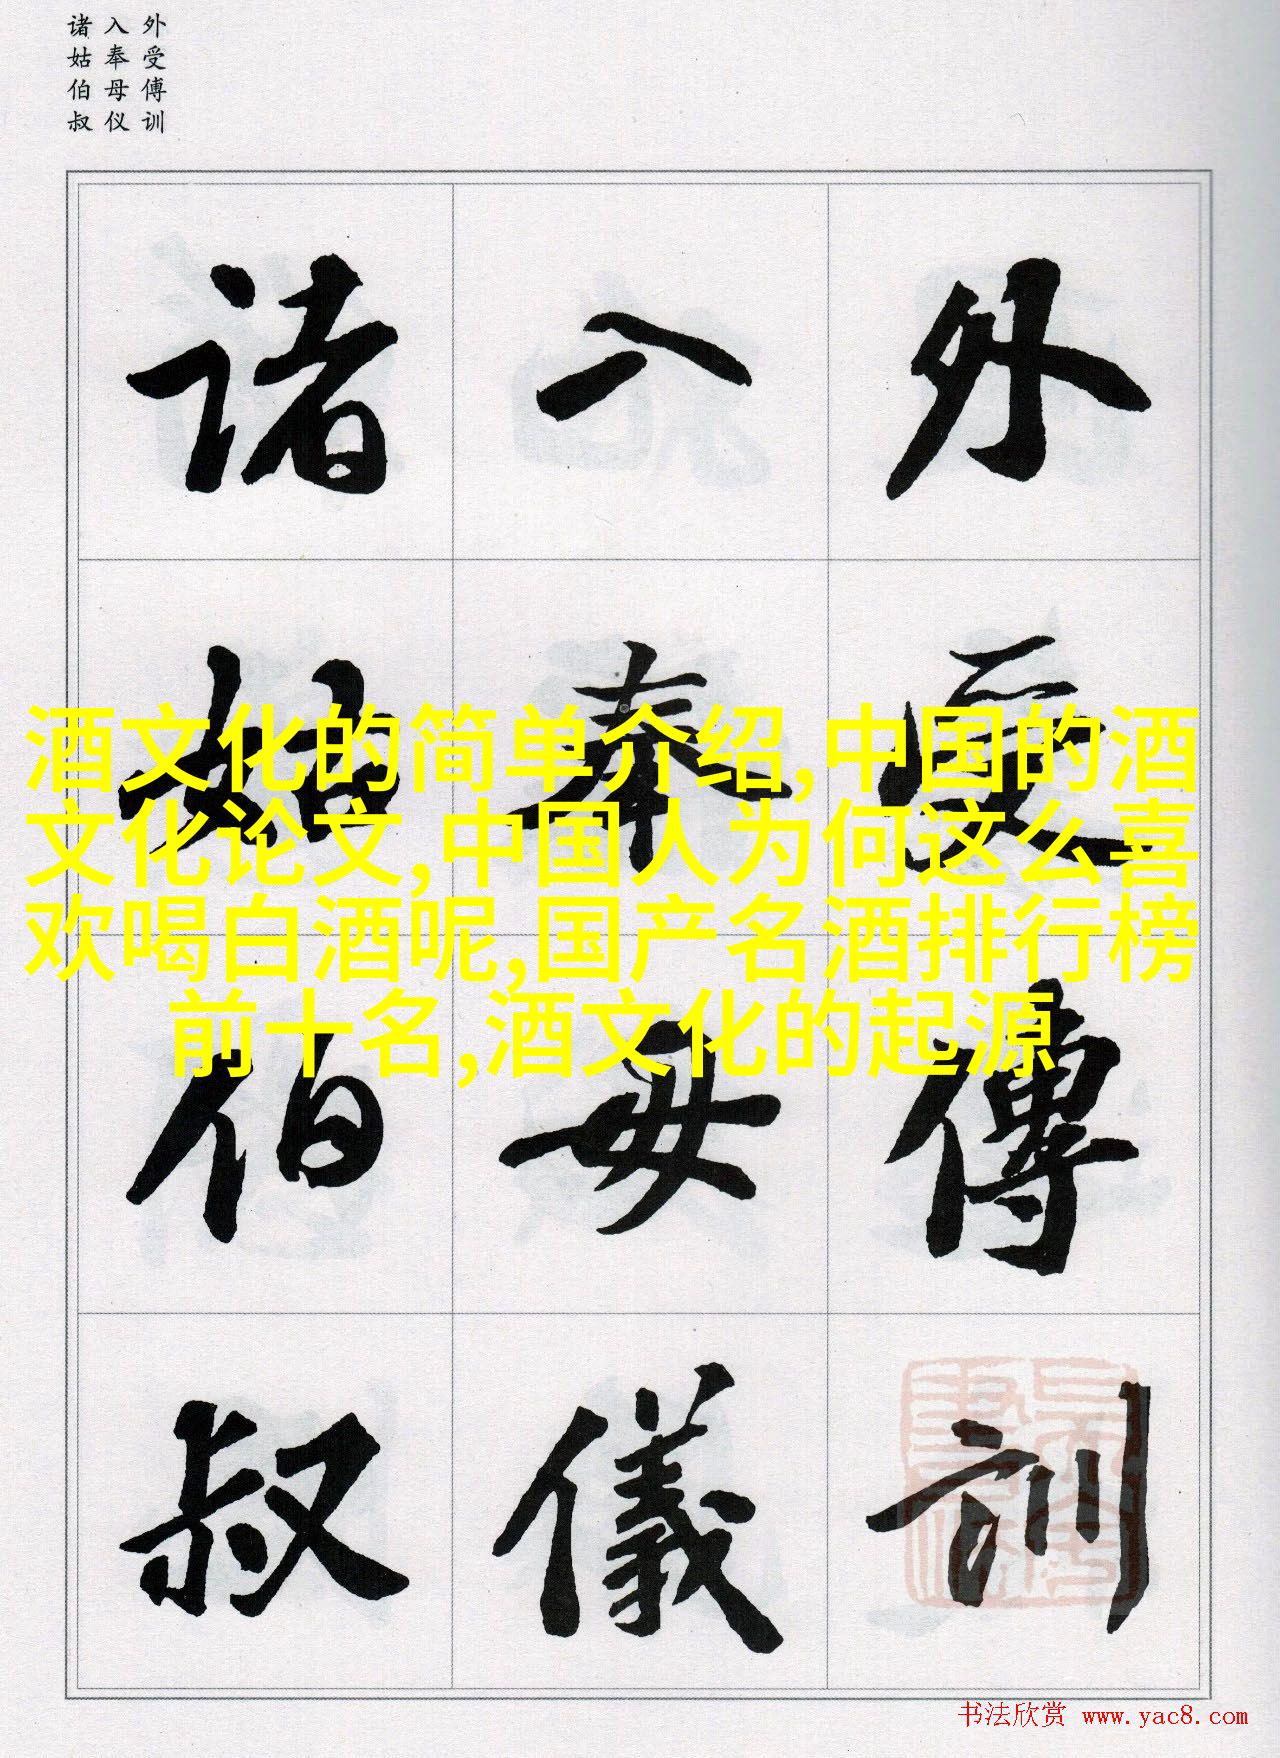 外受傅训
入奉母仪
诸姑伯叔
外受傅訓
入奉母儀
诸姑伯叔
酒文化的简单介绍,中国的酒
文化论文,中国人为何这么喜
欢喝白酒呢,国产名酒排行榜
前十名,酒文化的起源
书法欣赏 www.yac8.com